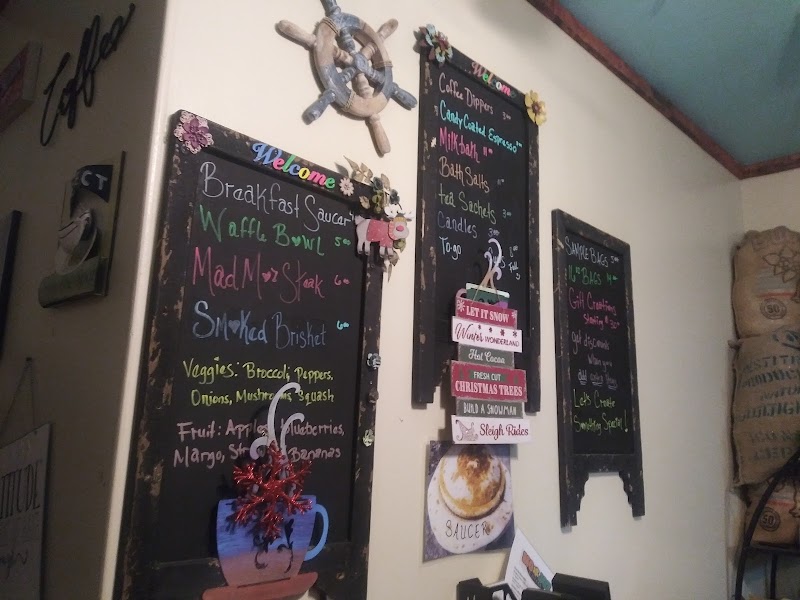 Coffee
CT
Welcome
Breakfast Saucer
Waffle Bowl 5.00
Mad Moz Steak 6.00
Smoked Brisket 6.00
Veggies: Broccoli, Peppers,
Onions, Mushrooms, Squash
Fruit: Apple, Blueberries,
Mango, Bananas
Welcome
Coffee Dippers 3.00
Candy Coated Espresso
Milk bath
Bath Salts
tea Sachets 3.00
Candles 3.00
To-go
LET IT SNOW
Winter WONDERLAND
Hot Cocoa
FRESH CUT
CHRISTMAS TREES
BUILD A SNOWMAN
Sleigh Rides
SAUCER
SAMPLE BAGS
BAGS
Gift Creations
Starting $
get discounts
when you
Lets Create
Something Special!
50
50